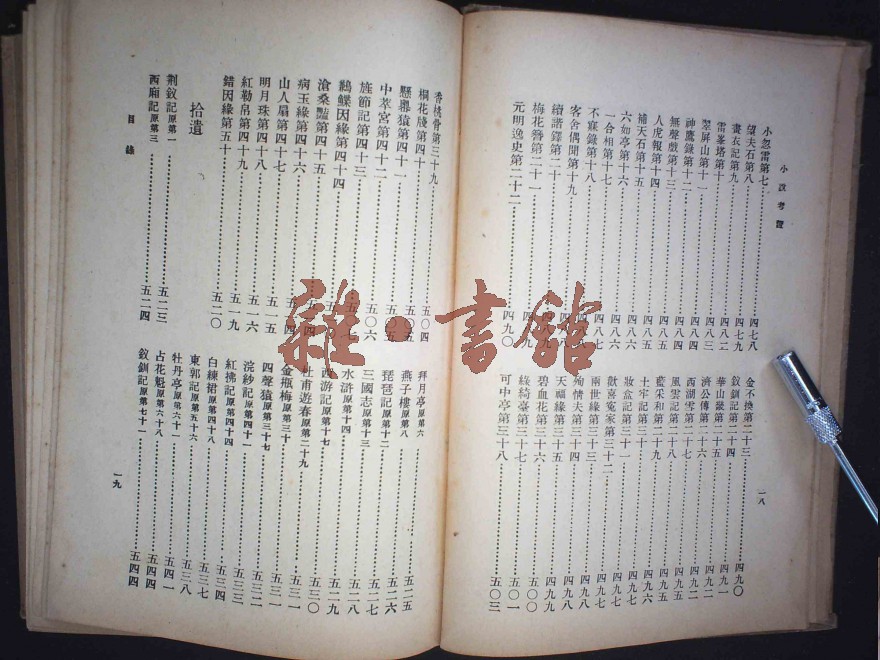 小說考證
小忽雷第七……四七八
望夫石第八……四七九
畫衣記第九……四七九
雷峯塔第十……四八二
翠屏山第十一……四八三
神鷹錄第十二……四八四
無聲戲第十三……四八四
人虎報第十四……四八五
補天石第十五……四八六
六如亭第十六……四八六
一合相第十七……四八七
不寐錄第十八
客舍偶聞第十九
續諧鐸第二十
梅花簪第二十一
元明逸史第二十二……四九〇
金不換第二十三……四九〇
釵釧記第二十四……四九一
華山緣第二十五……四九二
濟公傳第二十六……四九二
西湖雪第二十七……四九三
風雲記第二十八……四九四
藍采和第二十九……四九五
士牢記第三十……四九六
妝盒記第三十一……四九六
歡喜冤家第三十二……四九七
兩世緣第三十三……四九七
殉情夫第三十四……四九八
天福緣第三十五……四九八
碧血花第三十六……四九九
綠綺臺第三十七……五〇〇
可中亭第三十八……五〇三
一八
香桃骨第三十九……五〇四
桐花牋第四十……五〇五
懸嶴猿第四十一
中萃宮第四十二……五〇六
旌節記第四十三
鶼鰈因緣第四十四
滄桑豔第四十五
病玉緣第四十六
山人扇第四十七
明月珠第四十八……五一五
紅勒帛第四十九……五一六
錯因緣第五十……五二〇
拾遺
荆釵記原第一……五二三
西廂記原第三……五二四
目錄
拜月亭原第六……五二五
燕子樓原第八……五二六
琵琶記原第十二……五二六
三國志原第十三……五二七
水滸原第十四……五二八
西游記原第十七……五二九
杜甫遊春原第二十九……五三〇
金瓶梅原第三十……五三一
四聲猿原第三十七……五三二
浣紗記原第四十一……五三三
紅拂記原第四十四……五三三
白練裙原第四十八……五三七
東郭記原第五十六……五三八
牡丹亭原第六十一……五四一
占花魁原第六十八……五四四
釵釧記原第七十一……五四四
一九
雜·書館